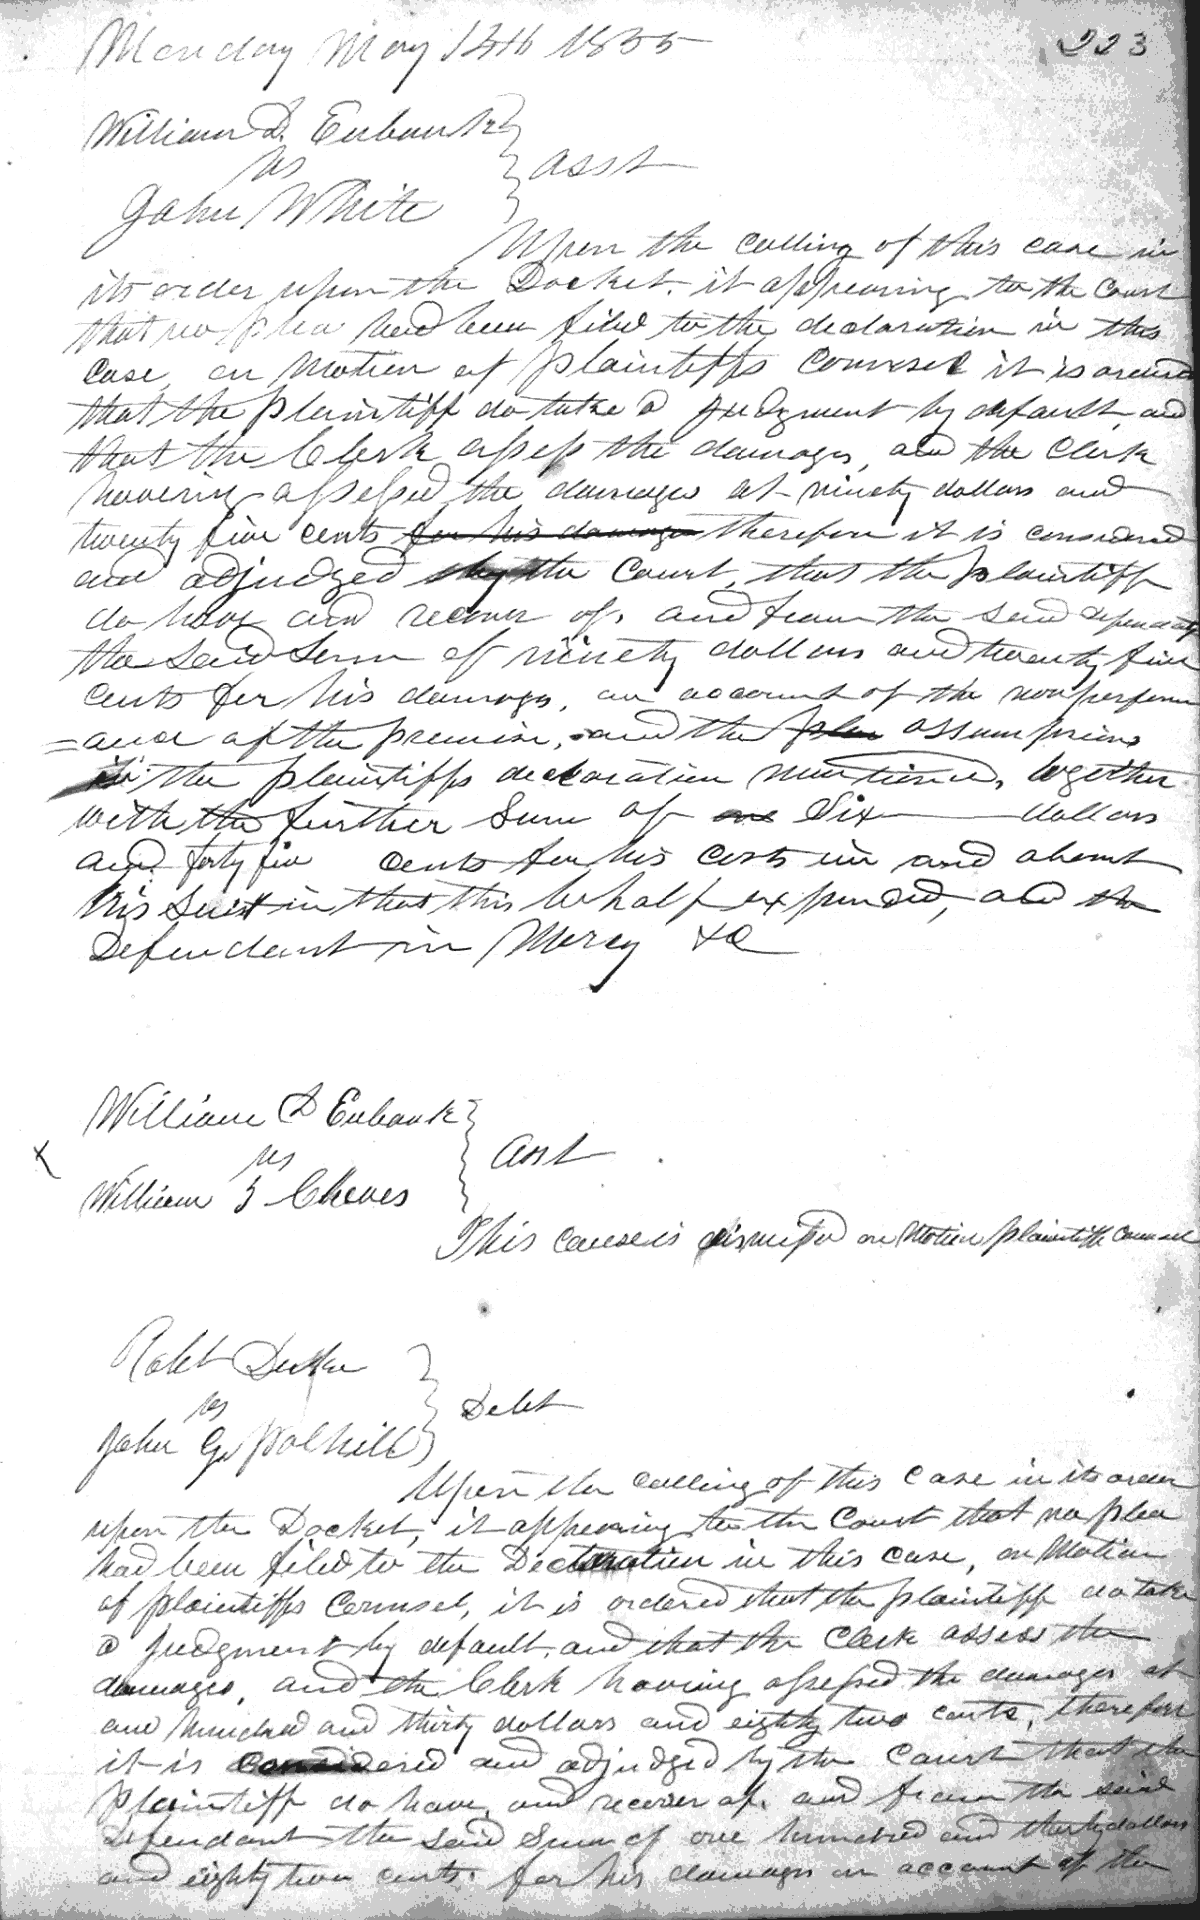 Monday May 14th 1855
223
William D. Eubank
vs
John White
Asst
Upon the calling of this case in
its order upon the Docket. it appearing to the Court
that no plea had been filed to the declaration in this
case, on Motion of plaintiffs Counsel it is ordered
that the plaintiff do take a judgment by default, and
that the Clerk assess the damages, and the Clerk
having assessed the damages at ninety dollars and
twenty five cents for his damages therefore it is considered
and adjudged by the Court, that the plaintiff
do have and recover of, and from the said defendant
the said sum of ninety dollars and twenty five
cents for his damages, on account of the nonperform
=ance of the promise, and the plea assumptions
in the plaintiffs declaration mentioned, together
with the further Sum of one Six dollars
and forty five cents for his costs in and about
his suit in that this behalf expended, and the
Defendant in Mercy &C
William D Eubank
vs
William Cheves
Asst
This cause is dismissed on Motion plaintiffs Counsel
Robt
vs
John G. Polhill
Debt
Upon the calling of this Case in its order
upon the Docket, it appearing to the Court that no plea
had been filed to the Declaration in this case, on Motion
of plaintiffs Counsel, it is ordered that the plaintiff do take
a judgment by default, and that the Clerk assess the
damages, and the Clerk having assessed the damages at
one hundred and thirty dollars and eighty two cents, therefore
it is considered and adjudged by the Court that the
plaintiff do have, and recover of, and from the said
Defendant the said Sum of one hundred and thirty dollars
and eighty two cents. for his damages on account of the